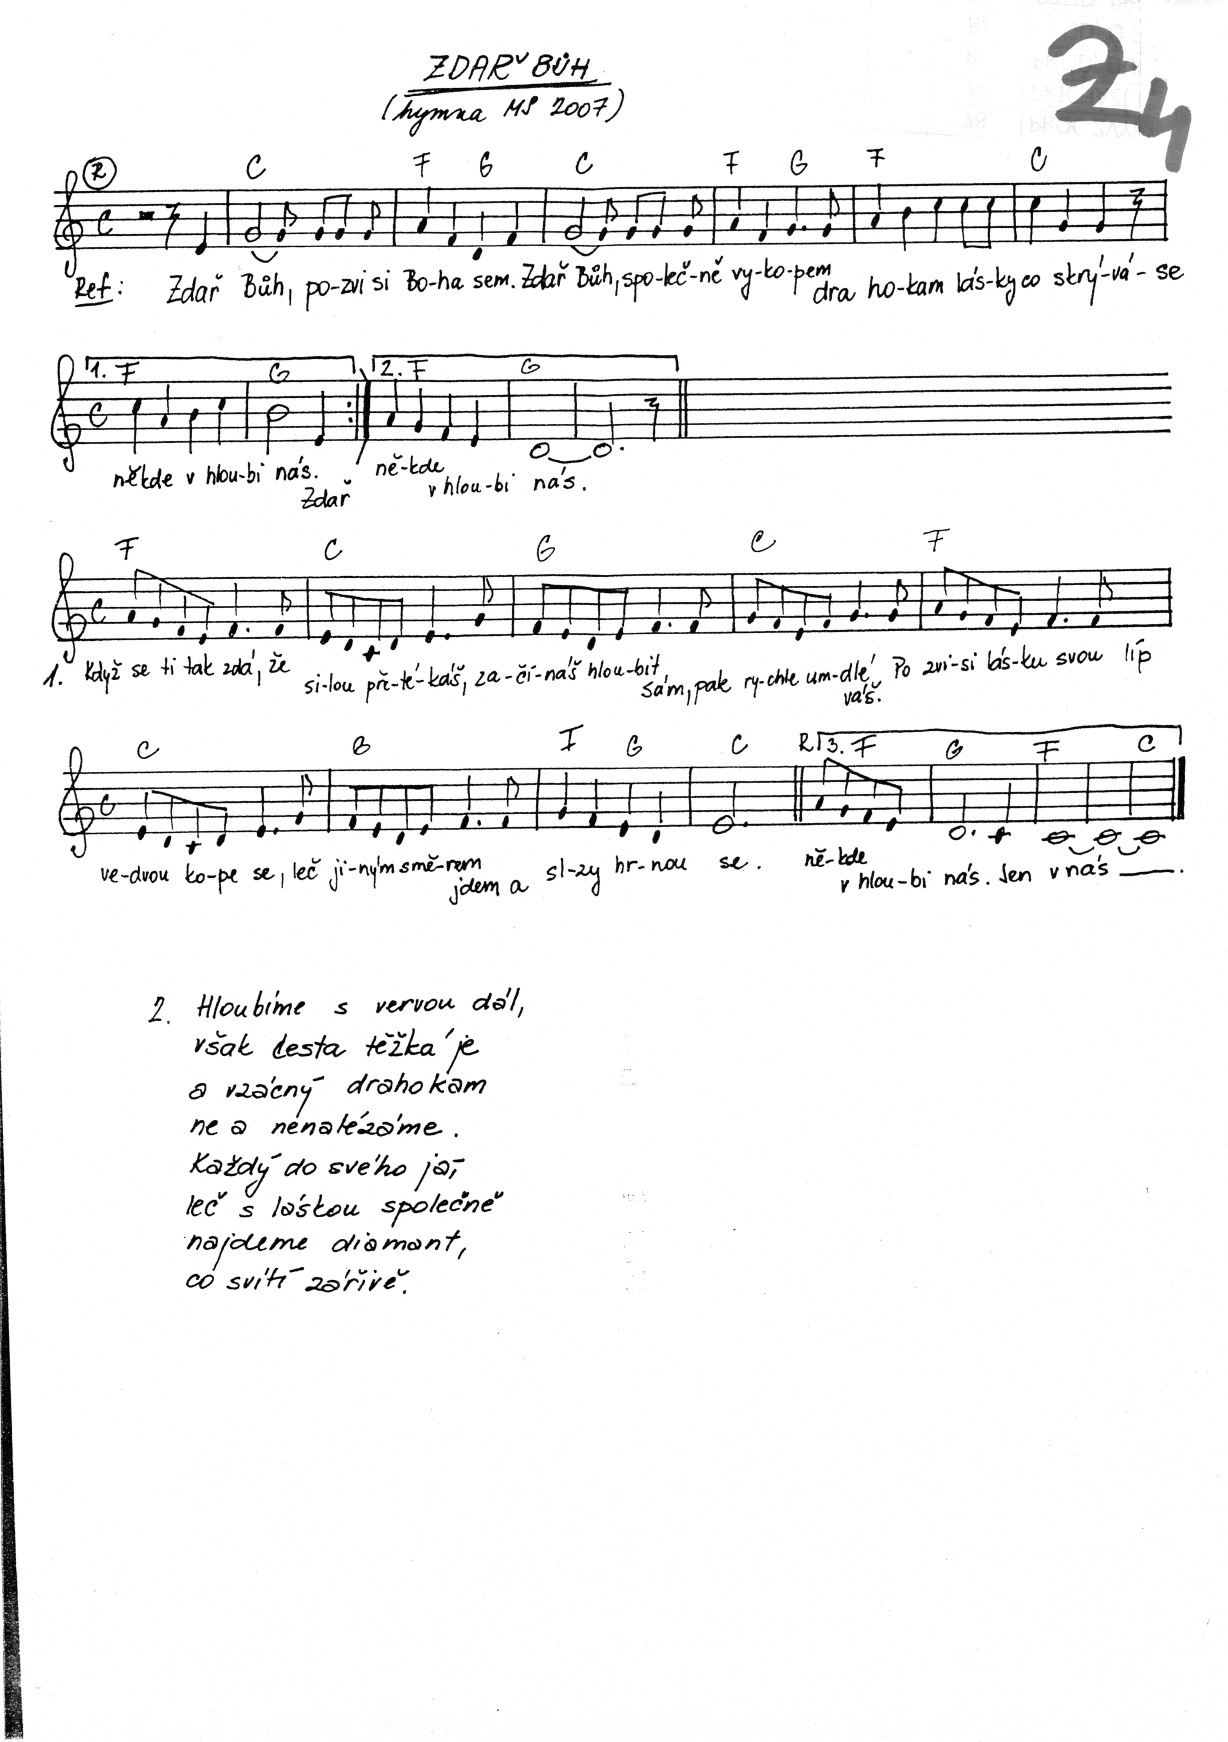 ZDAŘ BŮH
(hymna MS 2007)
Z4
R C F G C F G F C
Ref: Zdař Bůh, po-zvi si Bo-ha sem. Zdař Bůh, spo-leč-ně vy-ko-pem dra ho-kam lás-ky co skrý-vá-se
1. F G 2. F G
někde v hlou-bi nás. Zdař ně-kde v hlou-bi nás.
F C G C F
1. Když se ti tak zdá, že si-lou pře-té-káš, za-čí-náš hlou-bit sám, pak ry-chle um-dlé váš. Po zvi-si lás-ku svou líp
C G F G C R 3. F G F C
ve-dvou ko-pe se, leč ji-ným smě-rem jdem a sl-zy hr-nou se. ně-kde v hlou-bi nás. Jen v nás
2. Hloubíme s vervou dál,
však cesta těžká je
a vzácný drahokam
ne a nenalézáme.
Každý do svého jař,
leč s láskou společně
najdeme diamant,
co svítí zářivě.